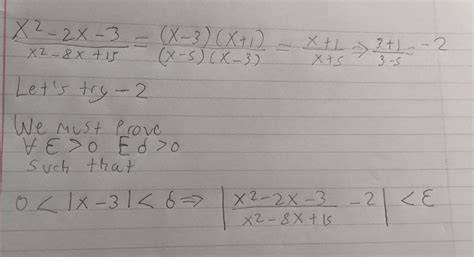 x²-2x-3/x²-8x+15 = (x-3)(x+1)/(x-5)(x-3) = x+1/x+5 ⇒ 3+1/3-5 = -2
Let's try -2
We must prove
∀ ε>0 E d>0
such that
0 < |x-3| < 6 ⇒ |x²-2x-3/x²-8x+15 -2| < ε